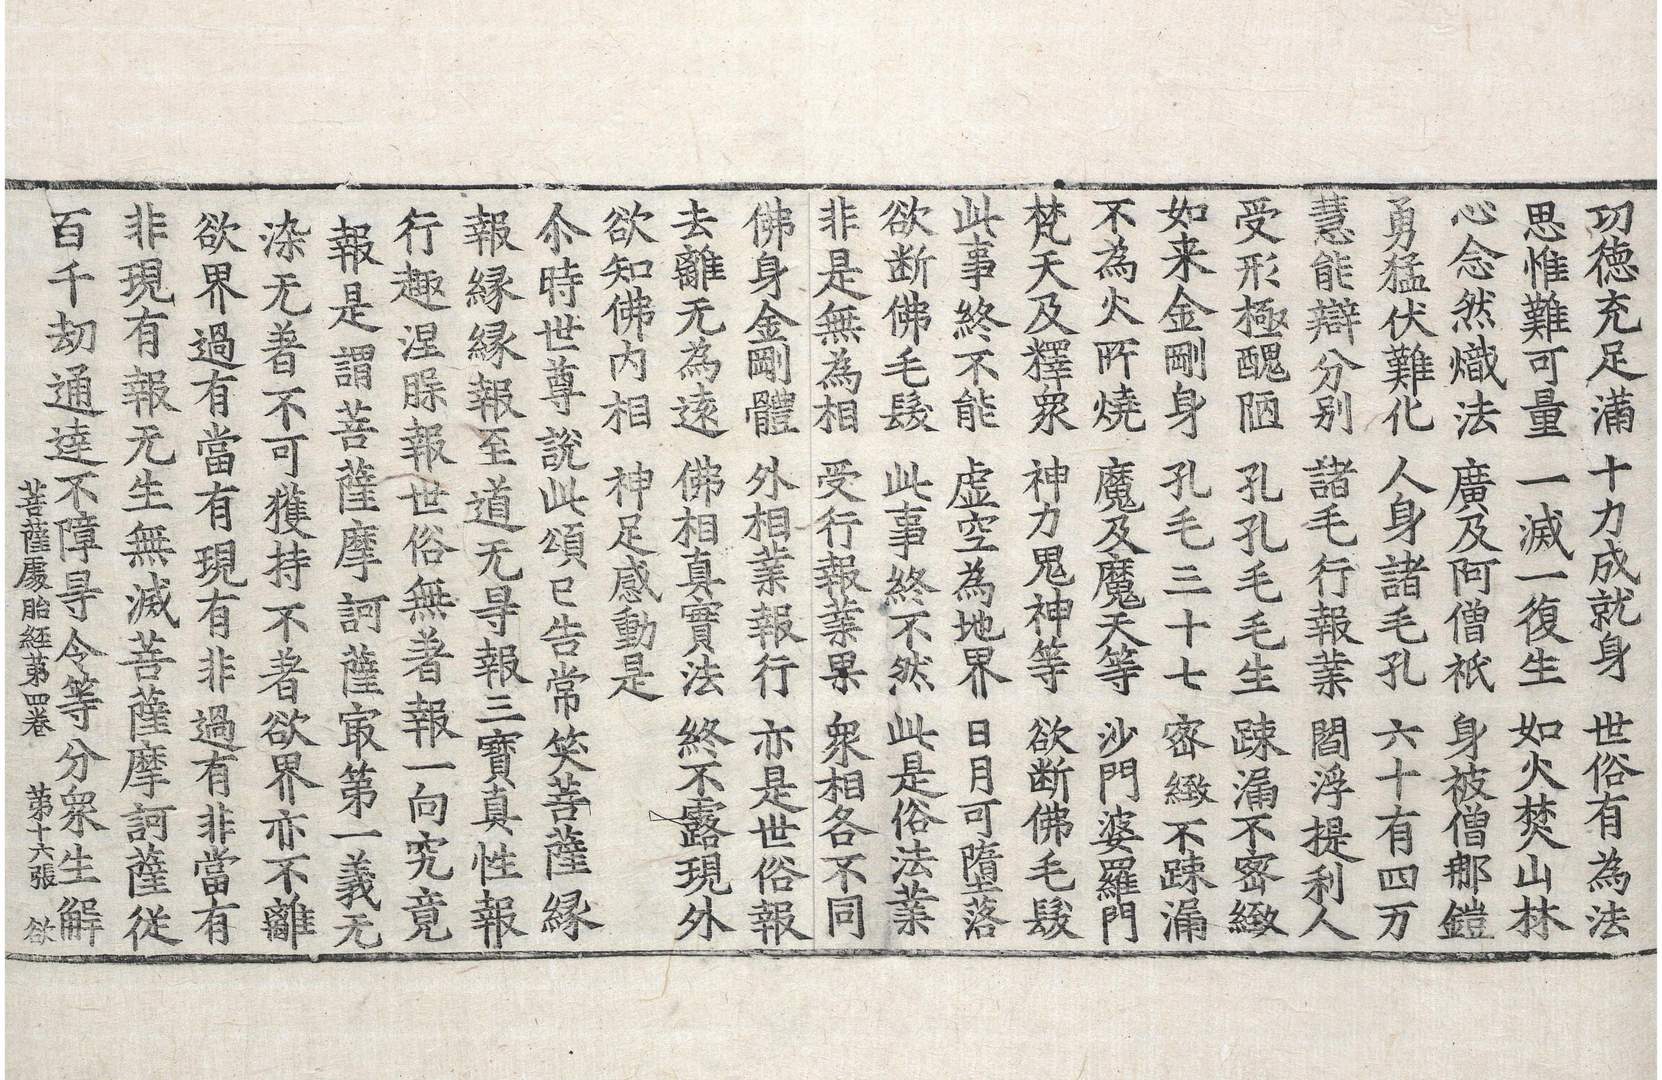 功德充足滿　十力成就身　世俗有為法
思惟難可量　一滅一復生　如火焚山林
心念然熾法　廣及阿僧祇　身被僧那鎧
勇猛伏難化　人身諸毛孔　六十有四万
慧能辯分別　諸毛行報業　閻浮提利人
受形極醜陋　孔孔毛毛生　踈漏不密緻
如来金剛身　孔毛三十七　密緻不踈漏
不為火所燒　魔及魔天等　沙門婆羅門
梵天及釋衆　神力鬼神等　欲断佛毛髮
此事終不能　虛空為地界　日月可墮落
欲断佛毛髮　此事終不然　此是俗法業
非是無為相　受行報業果　衆相各不同
佛身金剛體　外相業報行　亦是世俗報
去離无為遠　佛相真實法　終不露現外
欲知佛內相　神足感動是
尒時世尊說此頌已告常笑菩薩緣
報緣緣報至道无㝵報三寶真性報
行趣涅槃報世俗無著報一向究竟
報是謂菩薩摩訶薩㝡第一義无
染无著不可獲持不著欲界亦不離
欲界過有當有現有非過有非當有
非現有報无生無滅菩薩摩訶薩從
百千劫通達不障㝵令等分衆生解
菩薩處胎經第四卷　第十六張　欲